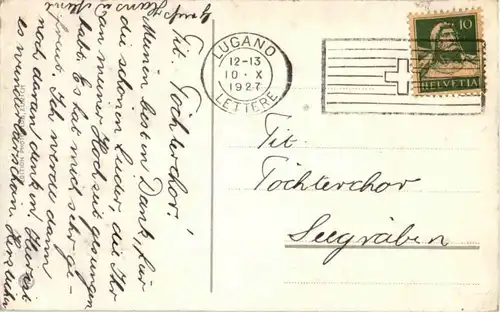 Tit. Töchterchor!
Meinen besten Dank, für
die schönen Lieder, die Ihr
an meiner Hochzeit gesungen
habt. Es hat mich sehr ge-
freut. Ich werde dann
noch daran denken. Hier ist
es wunderschön. Herzlichen
Gruss
Hans u.
LUGANO
12-13
10 · X
1927
LETTERE
10
HELVETIA
Tit.
Töchterchor
Seegräben